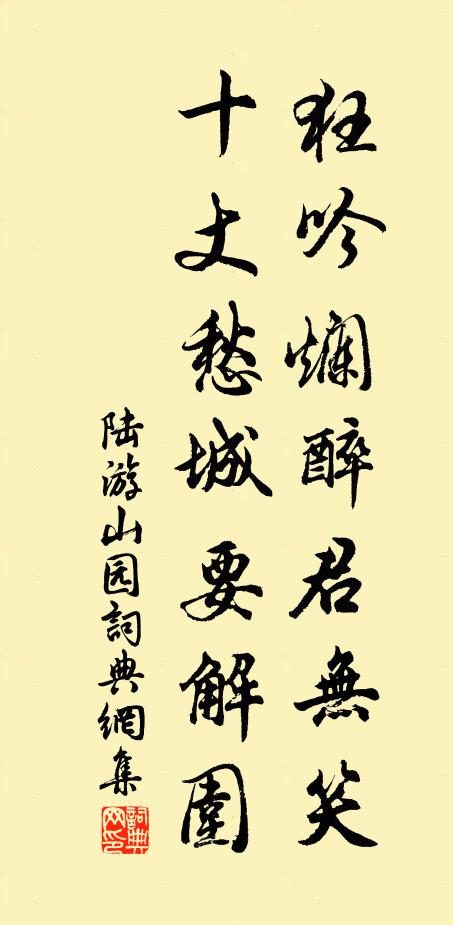 狂吟爛醉君無笑
十丈愁城要解圍
陆游山园詞典網集
詞典网印